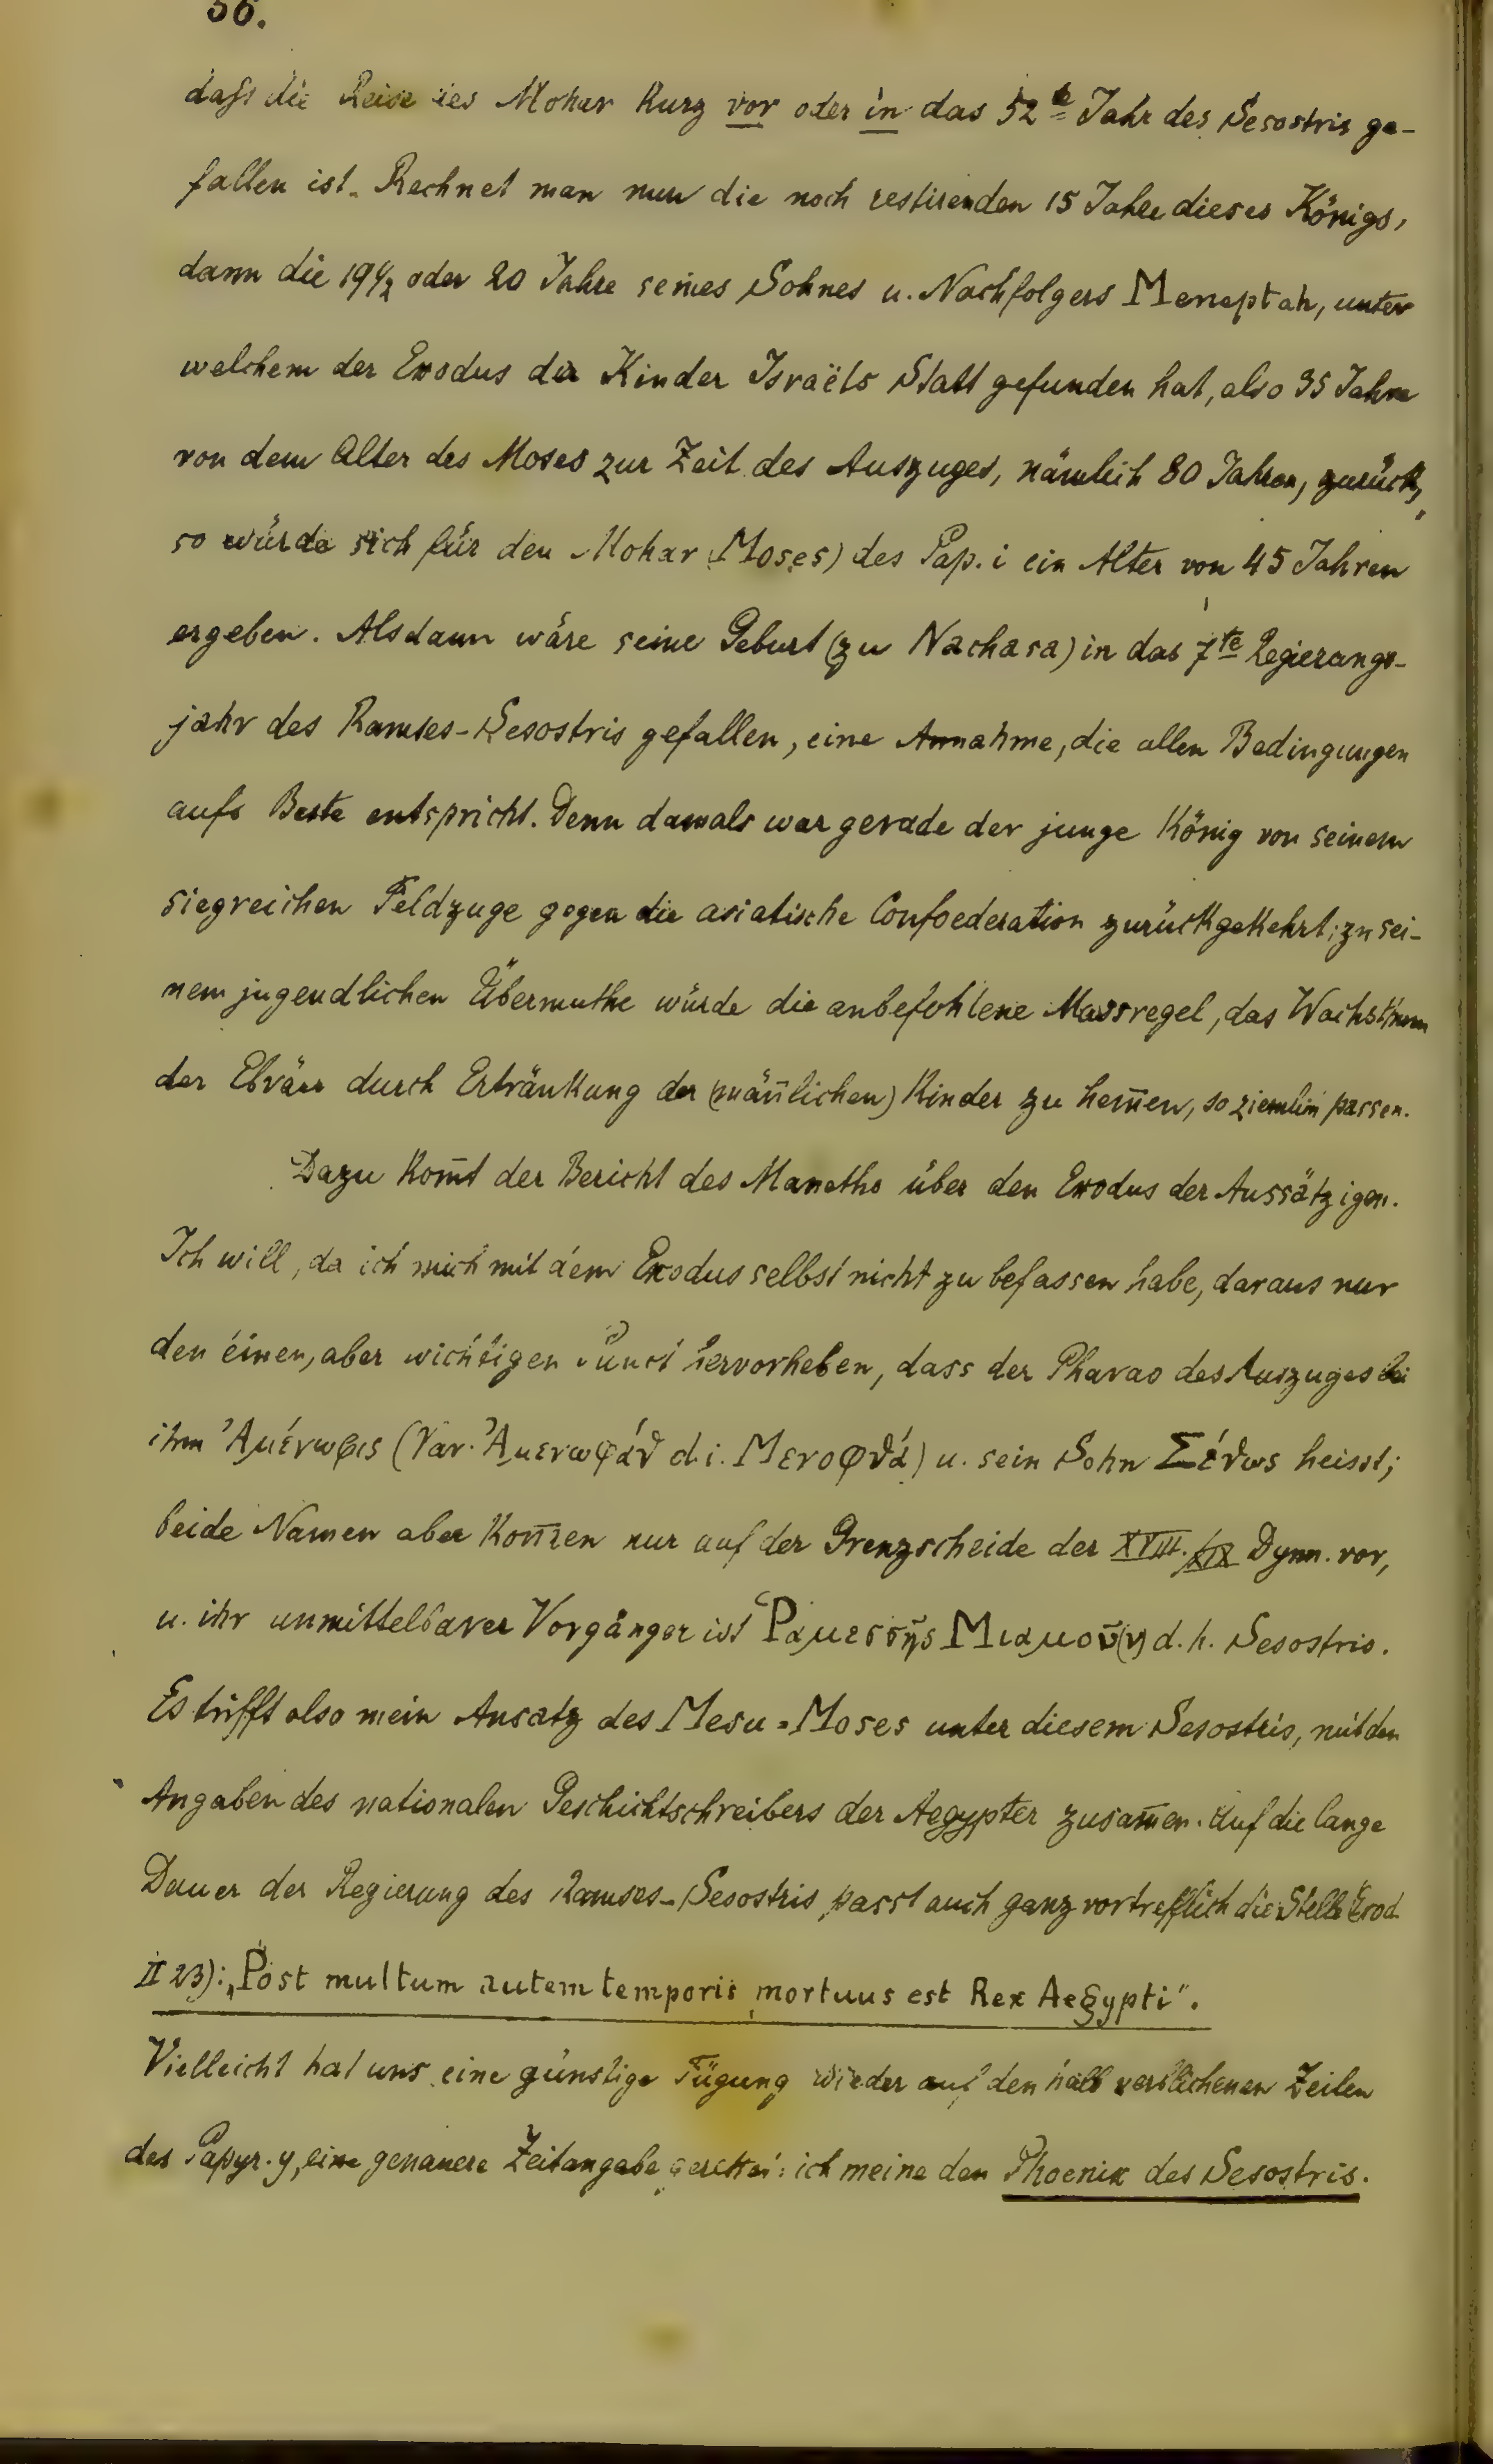 56.
dass die Reise des Mohar kurz vor oder in das 52te Jahr des Sesostris ge-
fallen ist. Rechnet man nun die noch restirenden 15 Jahre dieses Königs,
dann die 19½ oder 20 Jahre seines Sohnes u. Nachfolgers Meneptah, unter
welchem der Exodus der Kinder Israëls Statt gefunden hat, also 35 Jahre
von dem Alter des Moses zur Zeit des Auszuges, nämlich 80 Jahren, zurück,
so würde sich für den Mohar (Moses) des Pap. i ein Alter von 45 Jahren
ergeben. Alsdann wäre seine Geburt (zu Nachasa) in das 7te Regierungs-
jahr des Ramses-Sesostris gefallen, eine Annahme, die allen Bedingungen
aufs Beste entspricht. Denn damals war gerade der junge König von seinem
siegreichen Feldzuge gegen die asiatische Confoederation zurückgekehrt; zu sei-
nem jugendlichen Übermuthe würde die anbefohlene Massregel, das Wachsthum
der Ebräer durch Ertränkung der (män̄lichen) Kinder zu hem̄en, so ziemlich passen.
Dazu kom̄t der Bericht des Manetho über den Exodus der Aussätzigen.
Ich will, da ich mich mit dem Exodus selbst nicht zu befassen habe, daraus nur
den éinen, aber wichtigen Punct hervorheben, dass der Pharao des Auszuges bei
ihm Ἀμένωφις (Var. Ἀμενωφάϑ d. i. Μενοφϑά) u. sein Sohn Σέϑως heisst;
beide Namen aber kom̄en nur auf der Grenzscheide der XVIII./XIX Dynn. vor,
u. ihr unmittelbarer Vorgänger ist Ῥαμεσσῆς Μιαμοῦ(ν) d. h. Sesostris.
Es trifft also mein Ansatz des Mesu-Moses unter diesem Sesostris, mit den
Angaben des nationalen Geschichtschreibers der Aegypter zusam̄en. Auf die lange
Dauer der Regierung des Ramses-Sesostris passt auch ganz vortrefflich die Stelle Exod
II 23): „Post multum autem temporis mortuus est Rex Aegypti".
Vielleicht hat uns eine günstige Fügung wieder auf den halb verblichenen Zeilen
des Papyr. y, eine genauere Zeitangabe gerettet: ich meine den Phoenix des Sesostris.